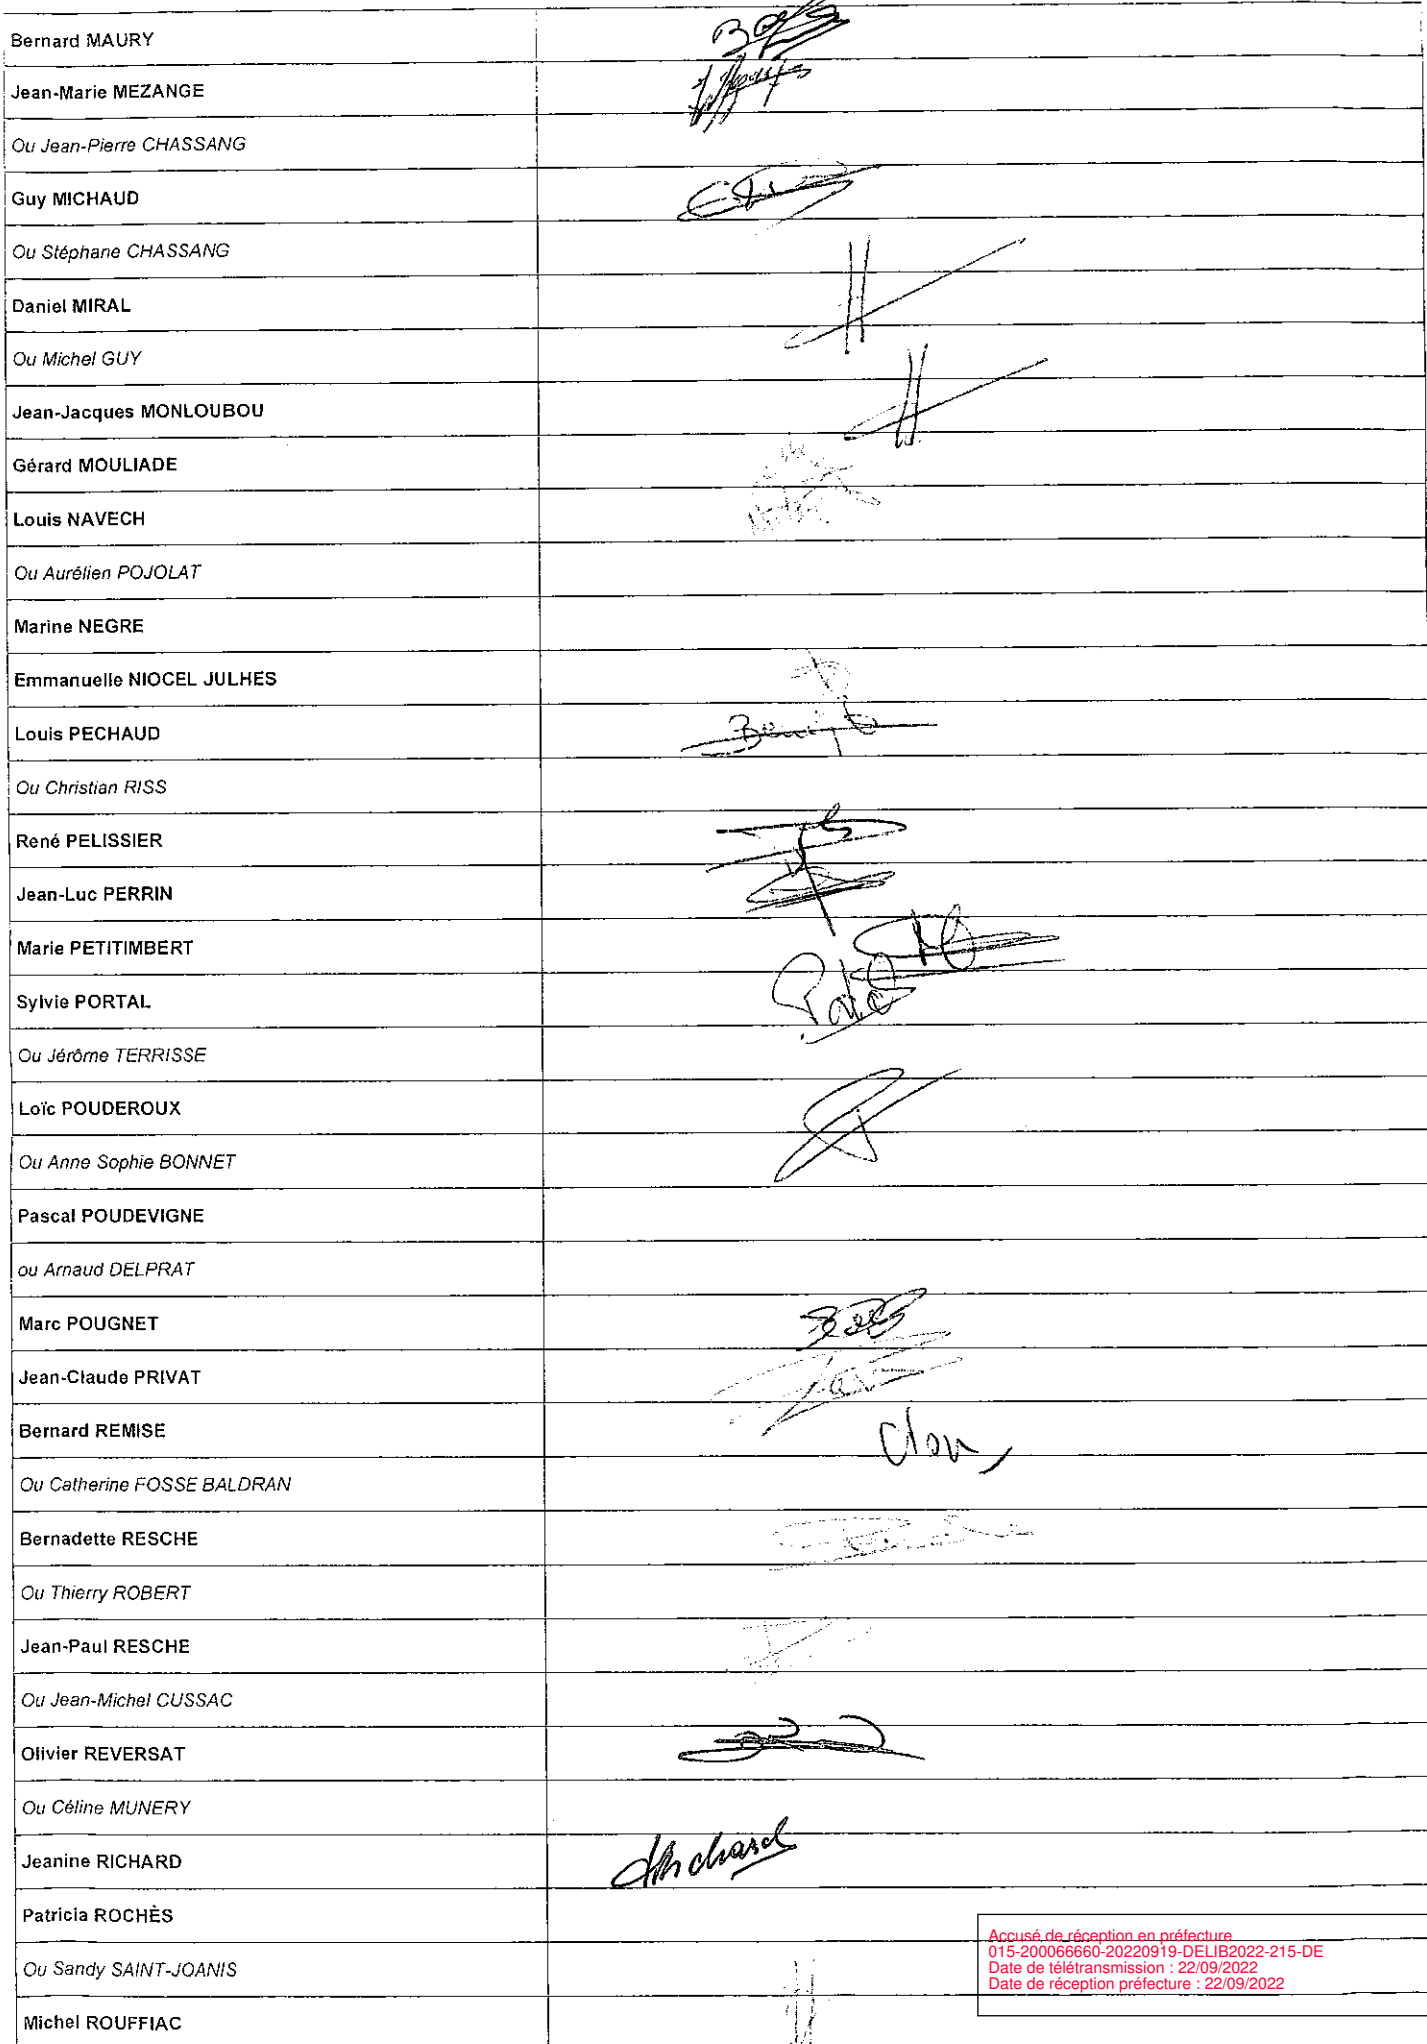 Bernard MAURY
Jean-Marie MEZANGE
Ou Jean-Pierre CHASSANG
Guy MICHAUD
Ou Stéphane CHASSANG
Daniel MIRAL
Ou Michel GUY
Jean-Jacques MONLOUBOU
Gérard MOULIADE
Louis NAVECH
Ou Aurélien POJOLAT
Marine NEGRE
Emmanuelle NIOCEL JULHES
Louis PECHAUD
Ou Christian RISS
René PELISSIER
Jean-Luc PERRIN
Marie PETITIMBERT
Sylvie PORTAL
Ou Jérôme TERRISSE
Loïc POUDEROUX
Ou Anne Sophie BONNET
Pascal POUDEVIGNE
ou Arnaud DELPRAT
Marc POUGNET
Jean-Claude PRIVAT
Bernard REMISE
Ou Catherine FOSSE BALDRAN
Bernadette RESCHE
Ou Thierry ROBERT
Jean-Paul RESCHE
Ou Jean-Michel CUSSAC
Olivier REVERSAT
Ou Céline MUNERY
Jeanine RICHARD
Patricia ROCHÈS
Ou Sandy SAINT-JOANIS
Michel ROUFFIAC
Accusé de réception en préfecture
015-200066660-20220919-DELIB2022-215-DE
Date de télétransmission : 22/09/2022
Date de réception préfecture : 22/09/2022